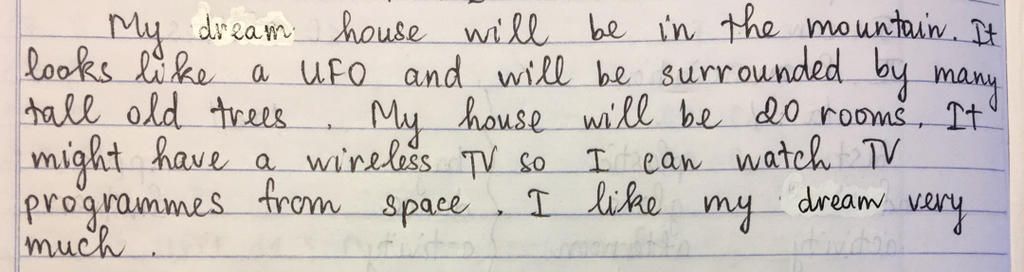 My dream house will be in the mountain. It
looks like a UFO and will be surrounded by many
tall old trees. My house will be 20 rooms. It
might have a wireless TV so I can watch TV
programmes from space. I like my dream very
much.